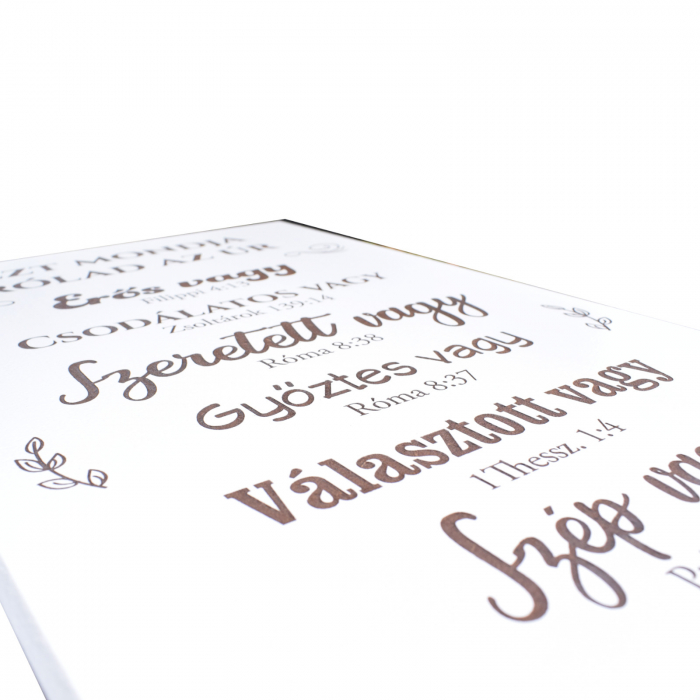 EZT MONDJA
RÓLAD AZ ÚR
Erős vagy
Filippi 4:13
CSODÁLATOS VAGY
Zsoltárok 139:14
Szeretett vagy
Róma 8:38
Győztes vagy
Róma 8:37
Választott vagy
1 Thessz. 1:4
Szép